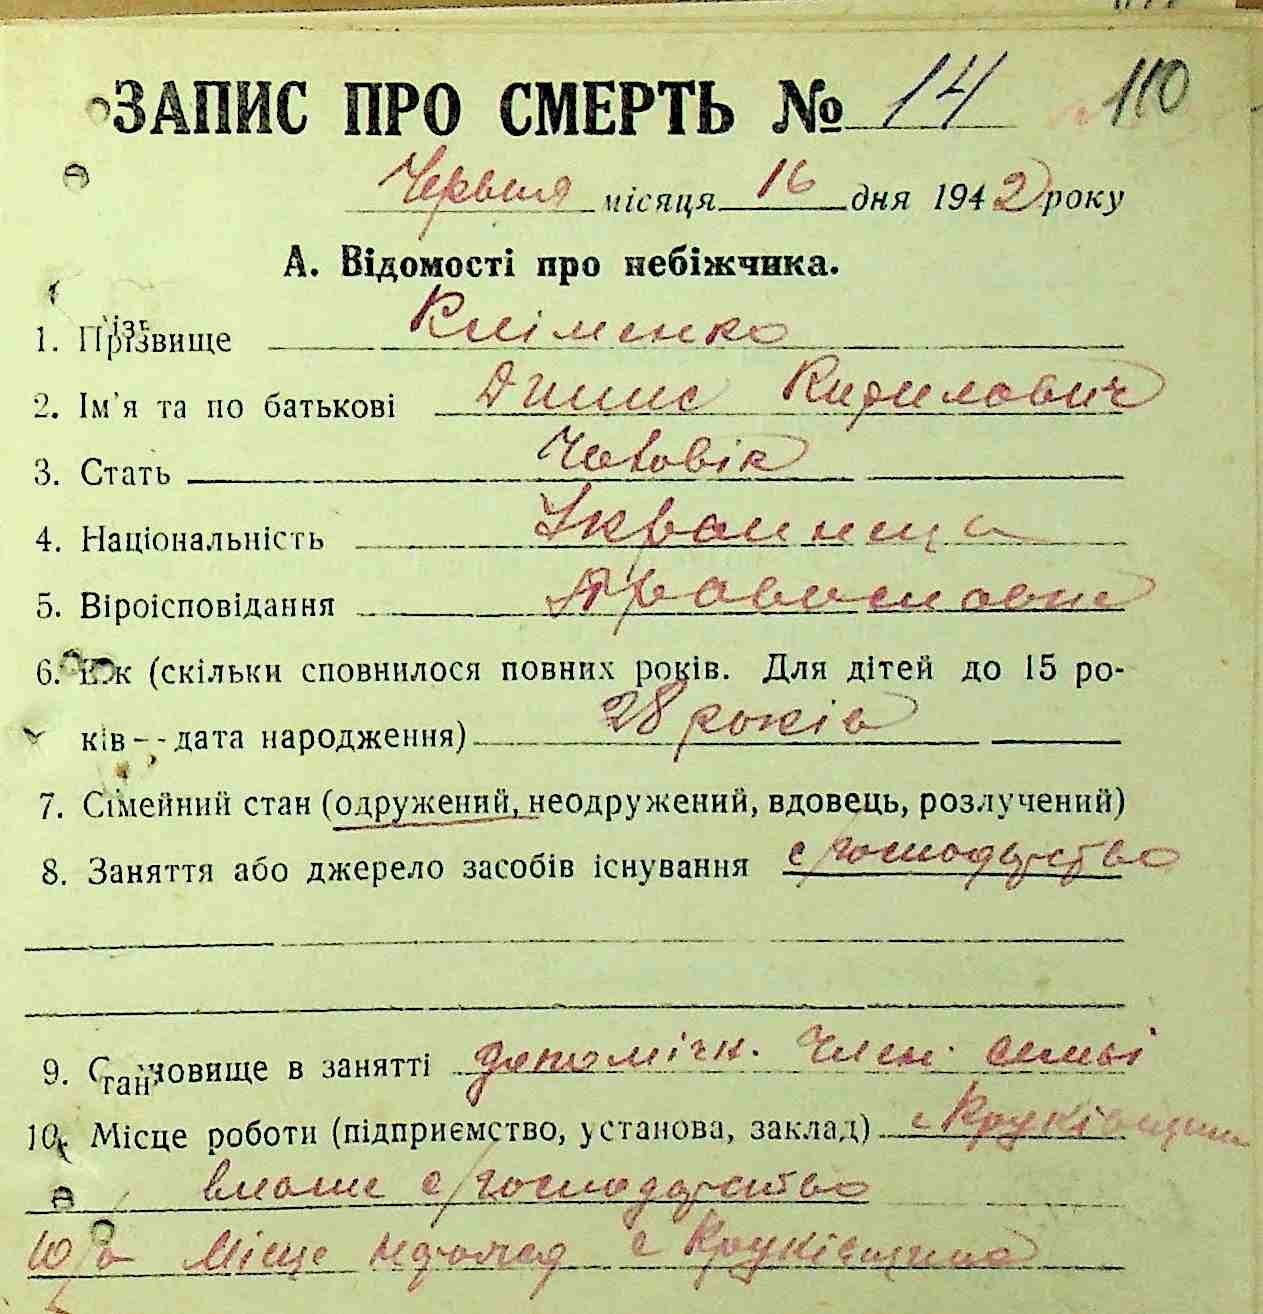 ЗАПИС ПРО СМЕРТЬ № 14 110
Червня місяця 16 дня 1942 року
А. Відомості про небіжчика.
1. Прізвище Кліменко
2. Ім'я та по батькові Динис Кирилович
3. Стать Чоловік
4. Національність Украинець
5. Віроісповідання Православне
6. Вік (скільки сповнилося повних років. Для дітей до 15 ро-
ків -- дата народження) 28 років
7. Сімейний стан (одружений, неодружений, вдовець, розлучений)
8. Заняття або джерело засобів існування с/господарство
9. Становище в занятті допоміжн. член. семьі
10. Місце роботи (підприємство, установа, заклад) с Круківщина
власне с/господарство
10/а Місце народж с Круківщина